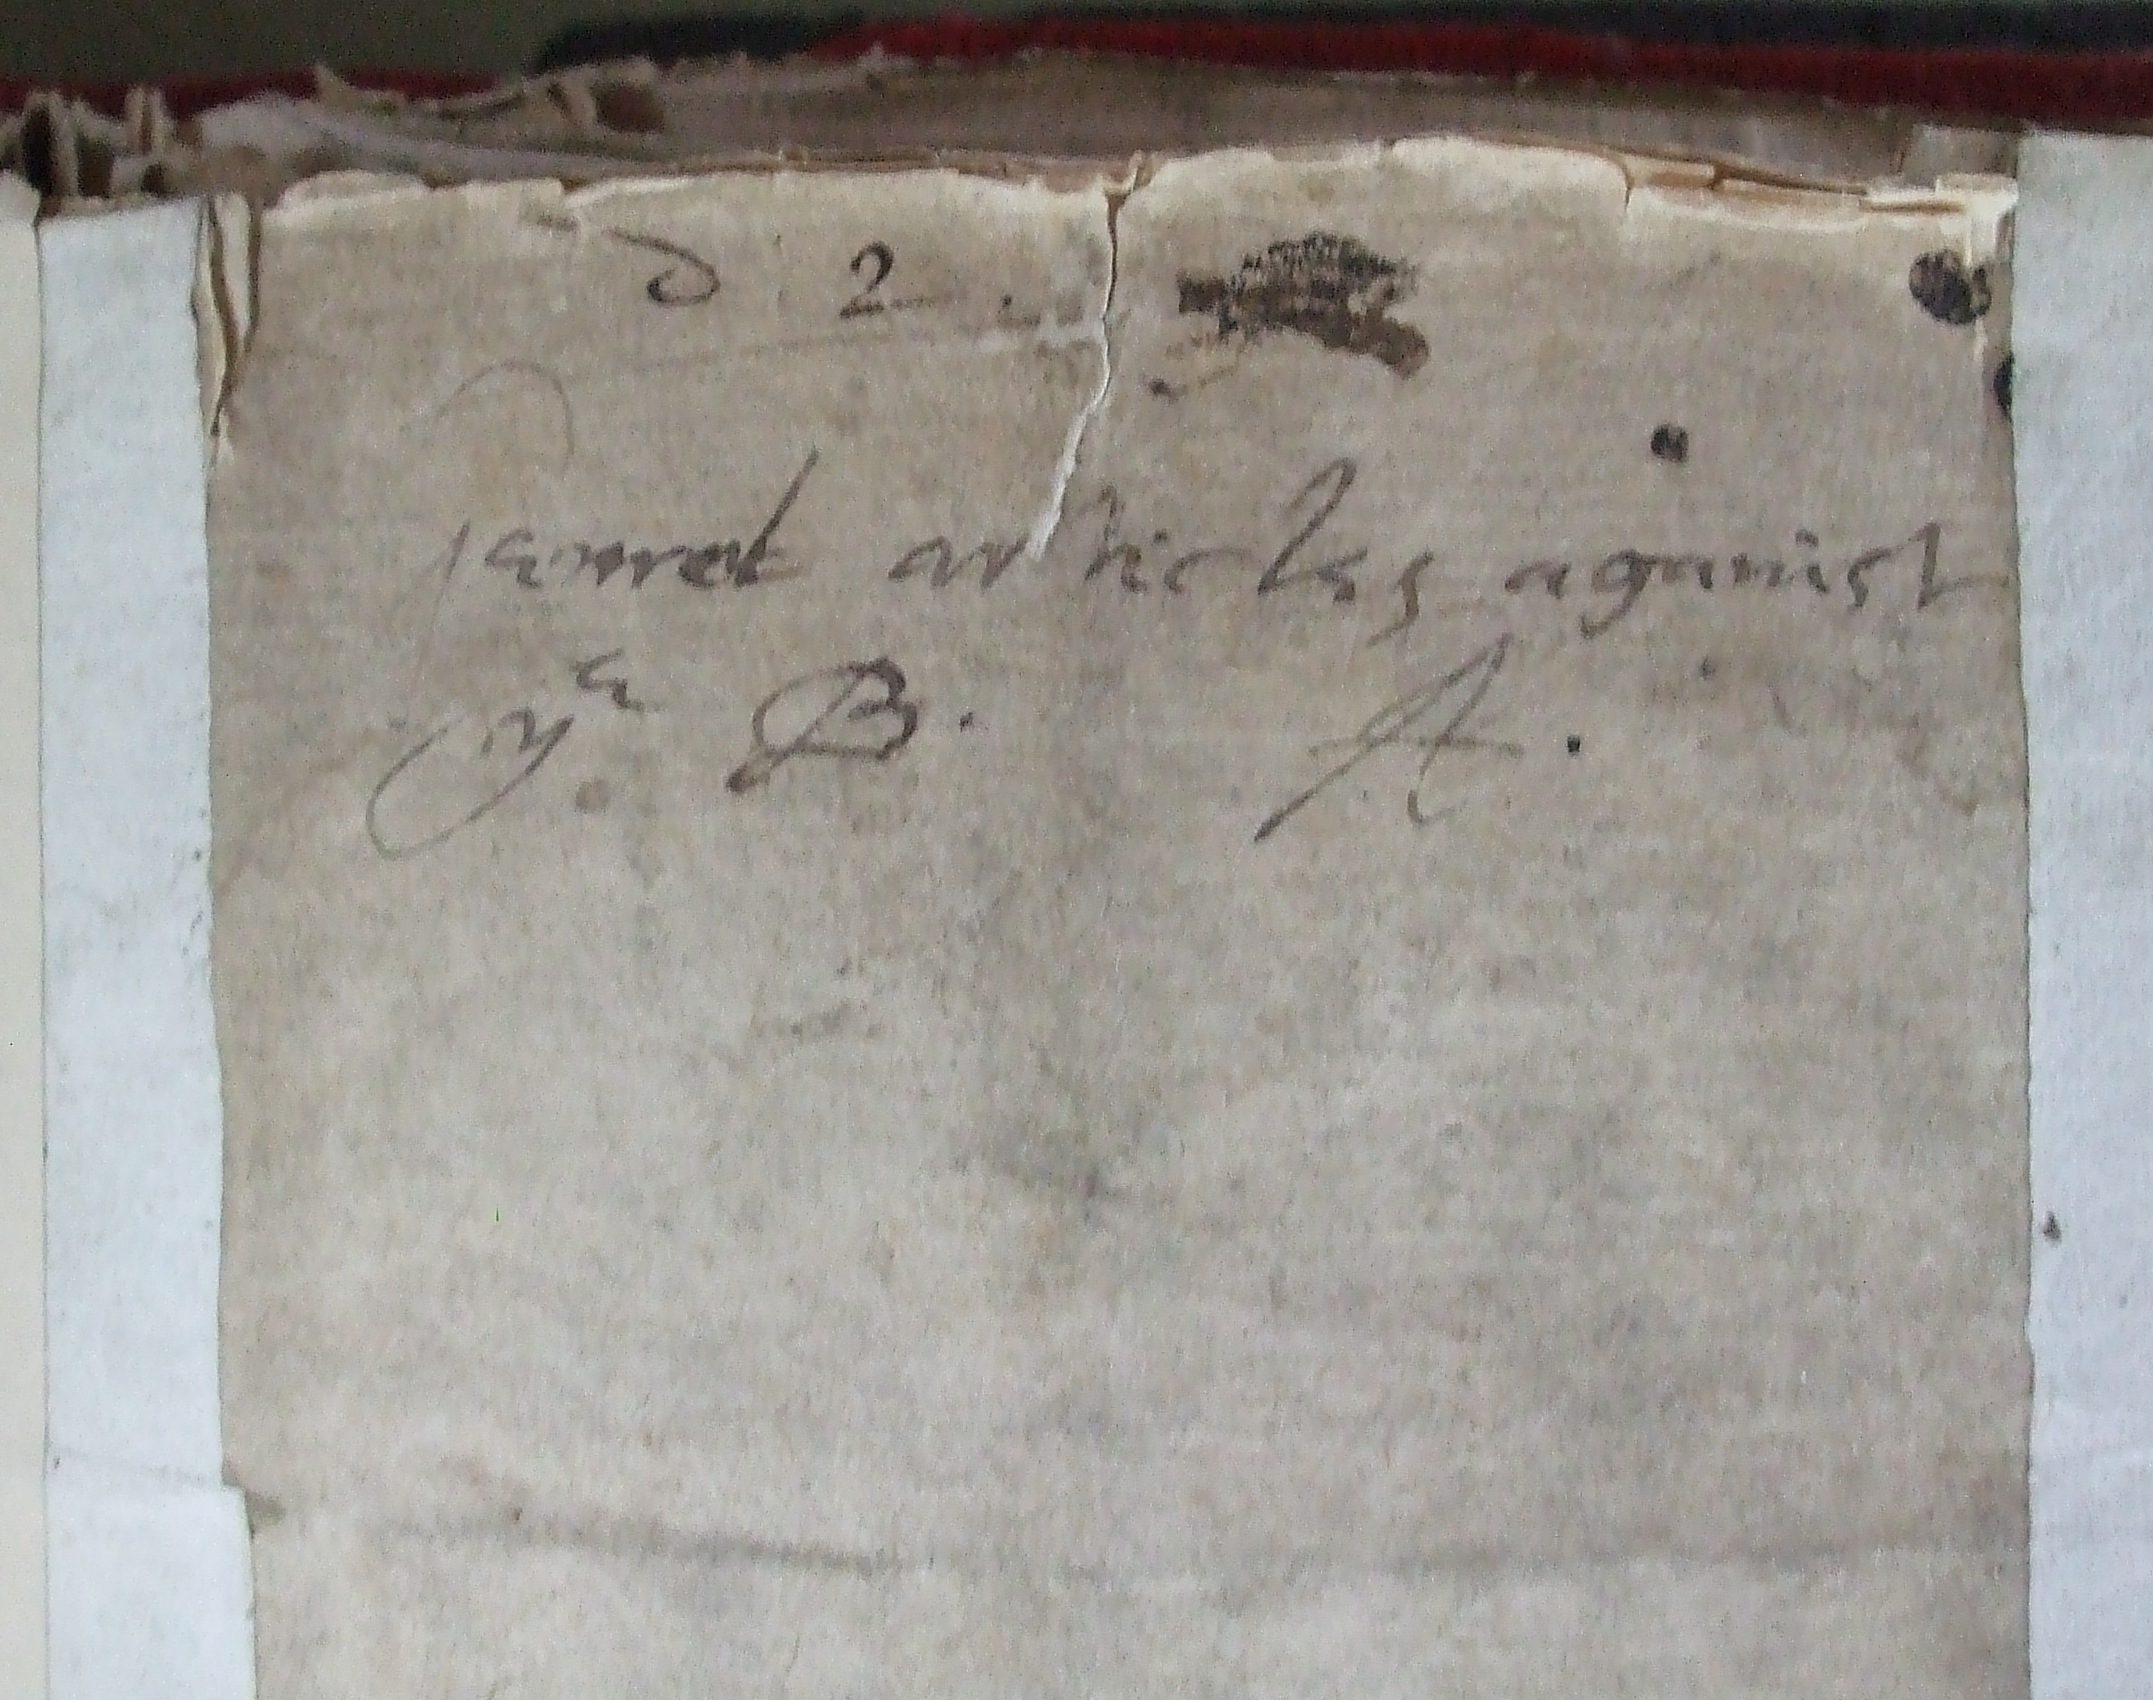 D 2 .
articles against
yᵉ B. A.